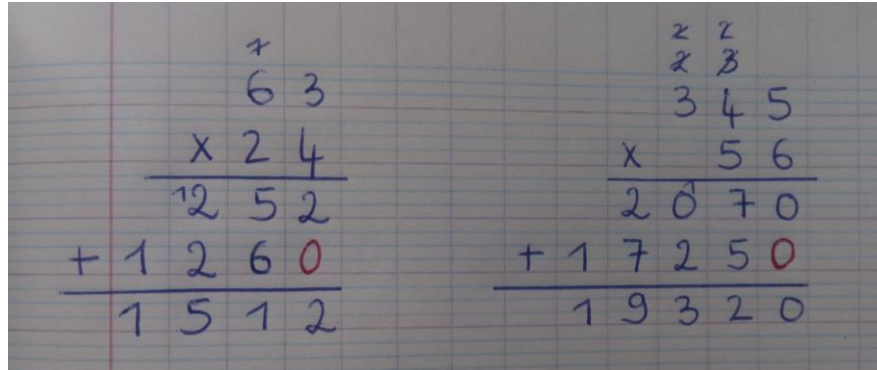 1
6 3
x 2 4
¹2 5 2
+ 1 2 6 0
1 5 1 2
2 2
2 3
3 4 5
x 5 6
2 0 ¹7 0
+ 1 7 2 5 0
1 9 3 2 0